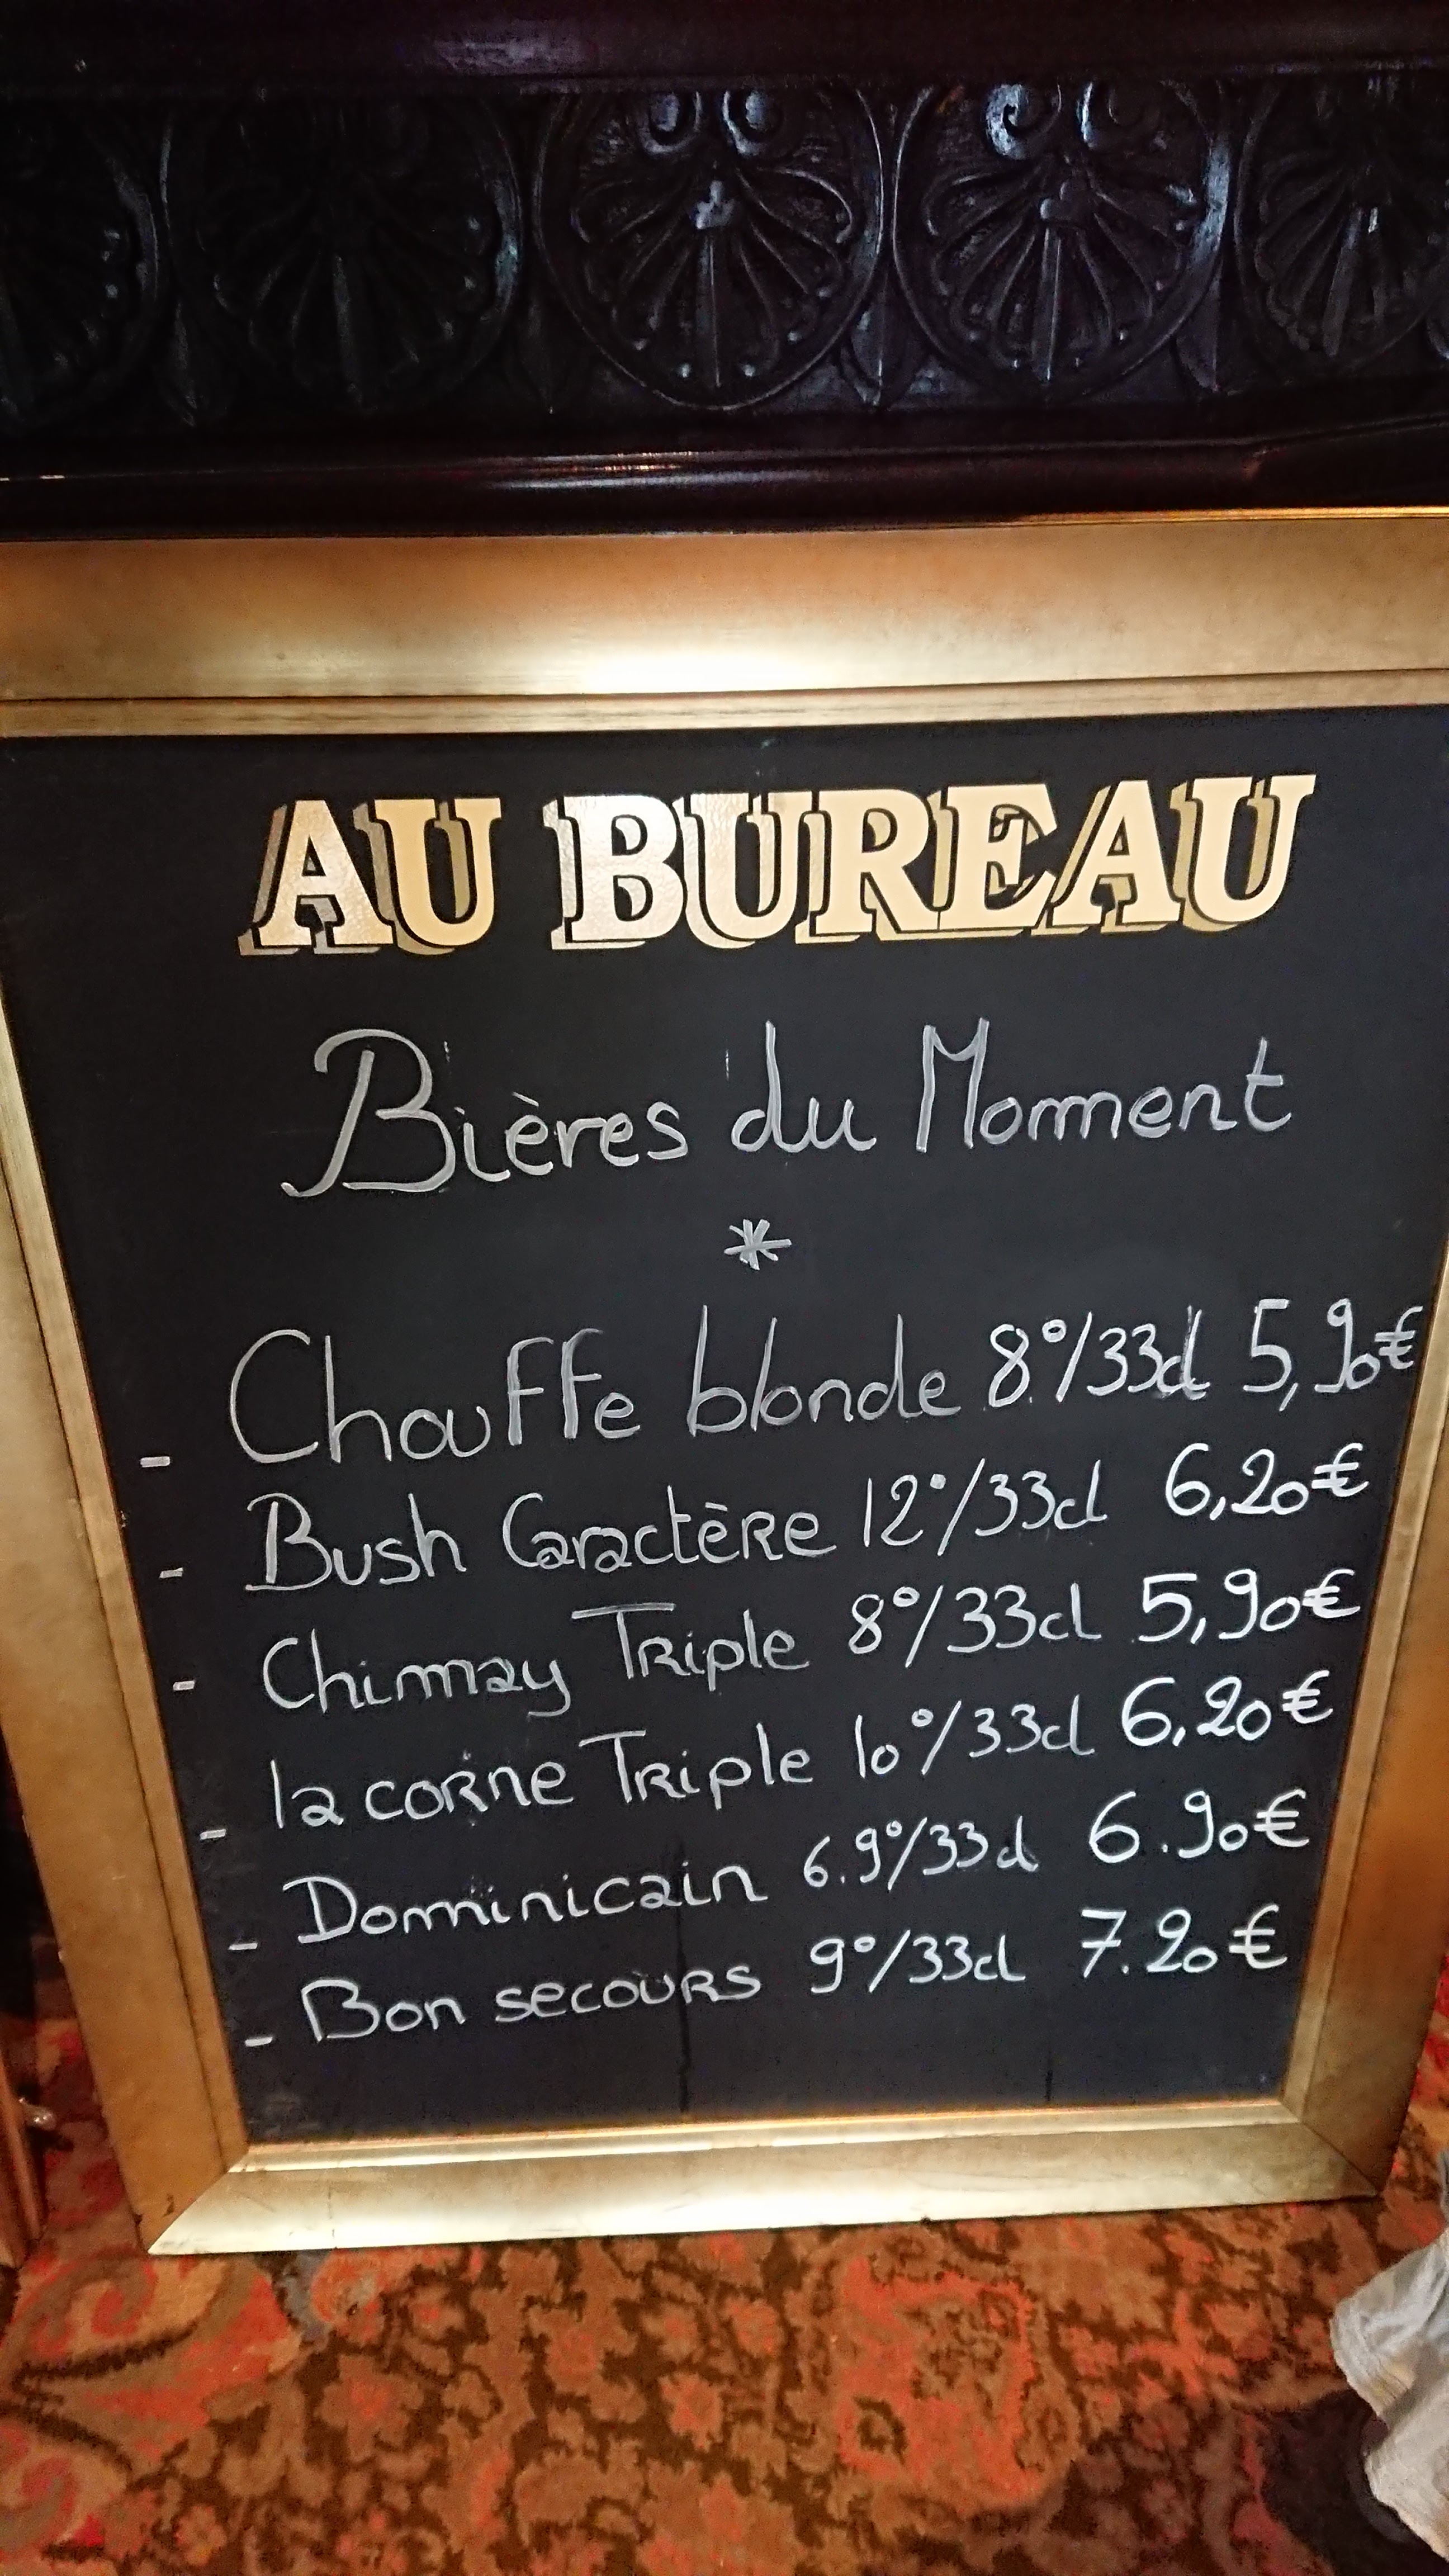 AU BUREAU
Bières du Moment
*
- Chouffe blonde 8°/33cl 5,90€
- Bush Caractère 12°/33cl 6,20€
- Chimay Triple 8°/33cl 5,90€
- la corne Triple 10°/33cl 6,20€
- Dominicain 6.9°/33cl 6.90€
- Bon secours 9°/33cl 7.20€